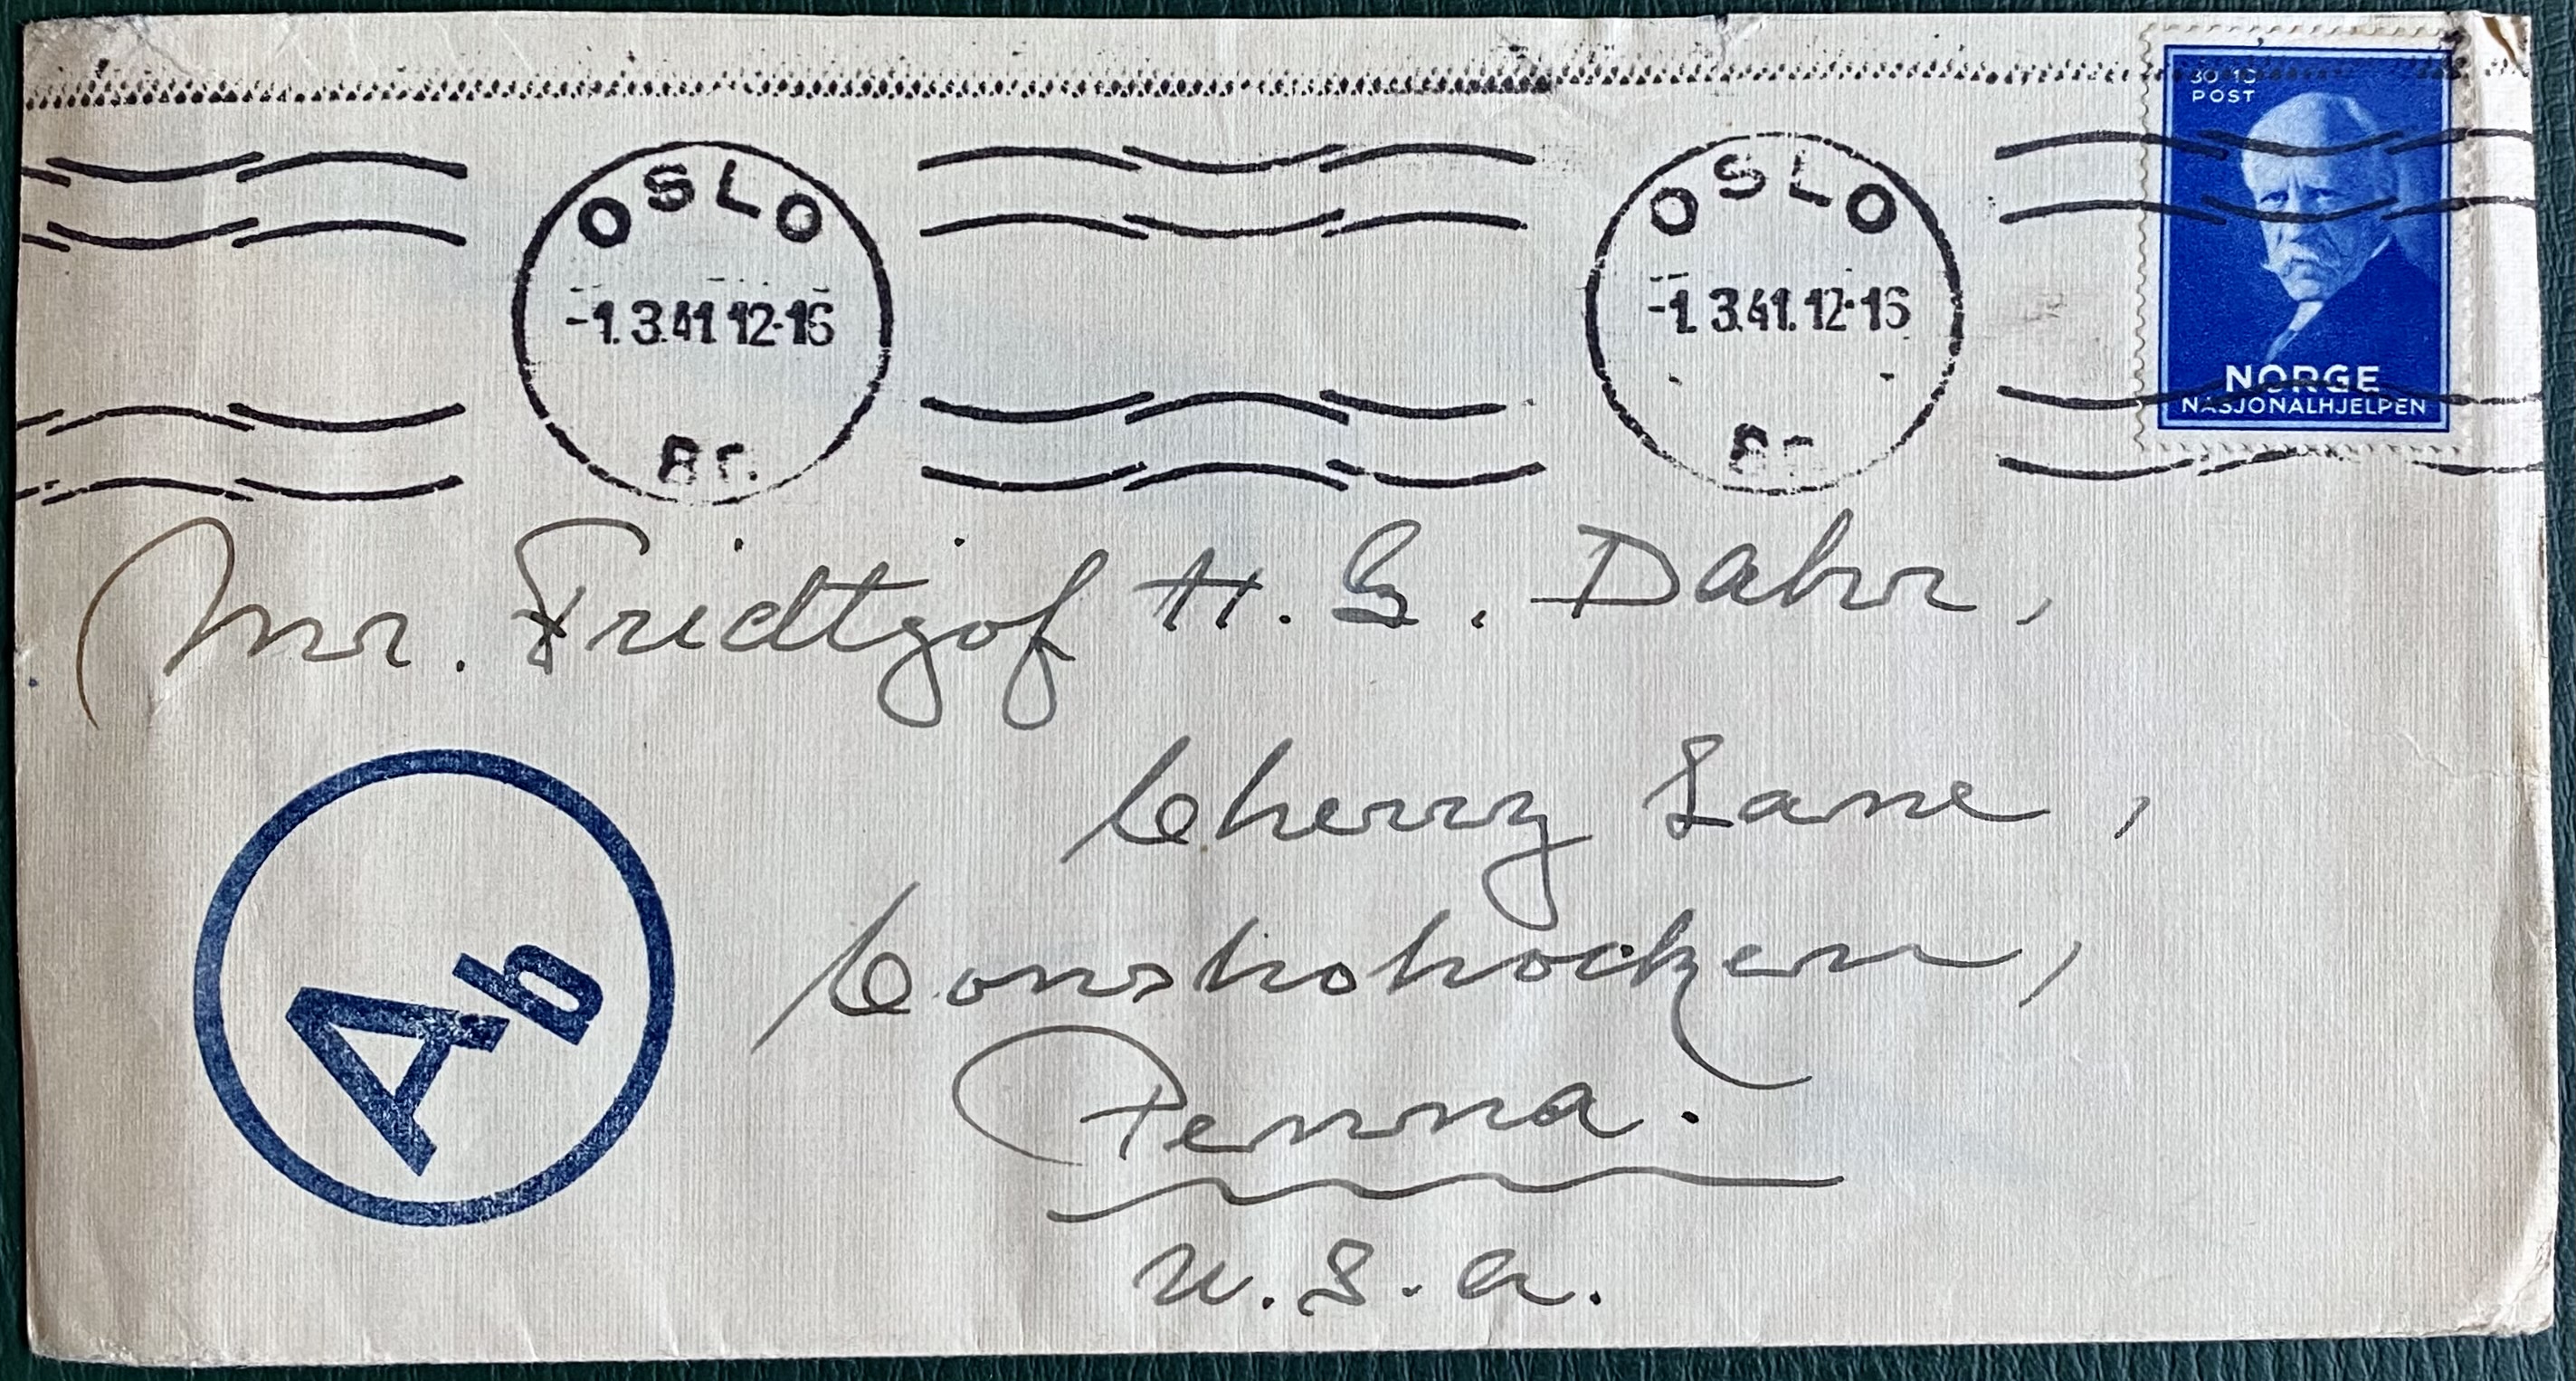 OSLO
-1.3.41 12-16
Br.
OSLO
-1.3.41. 12-16
Br.
30+10
POST
NORGE
NASJONALHJELPEN
Mr. Fridtjof H. G. Dahn,
Cherry Lane,
Conshohocken,
Penna.
U.S.A.
Ab